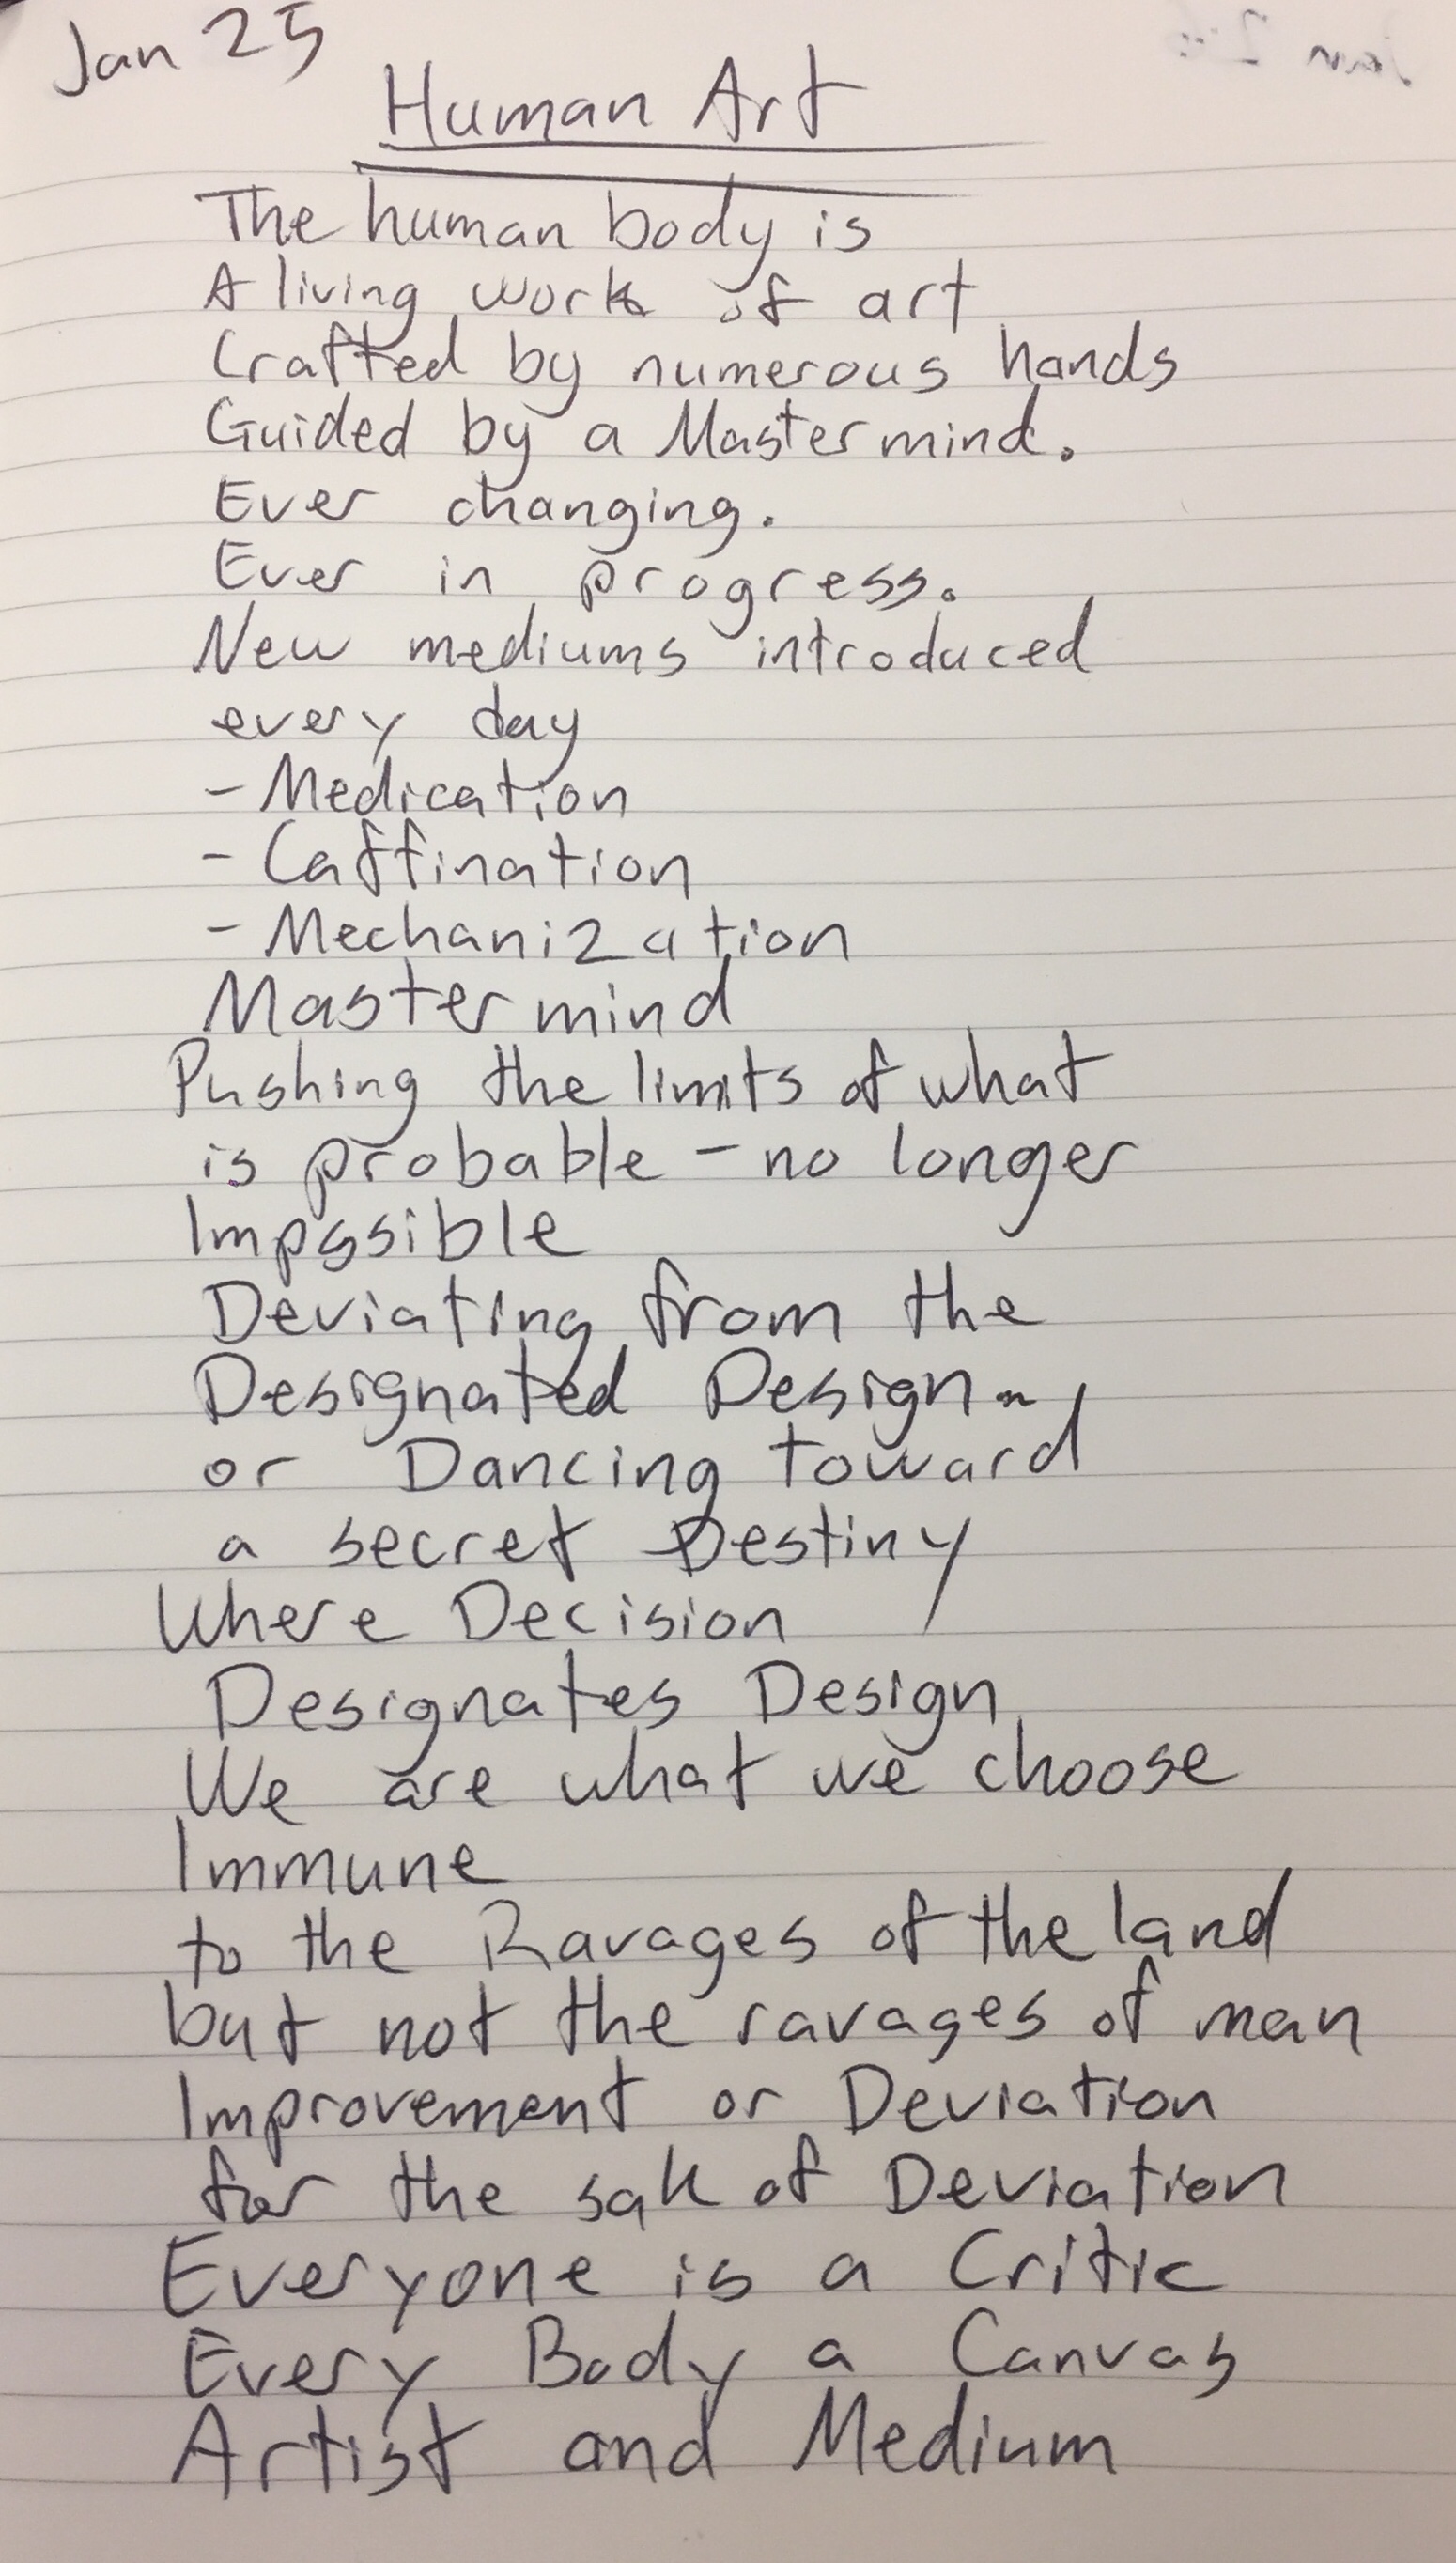 Jan 25
Human Art
The human body is
A living work of art
Crafted by numerous hands
Guided by a Mastermind.
Ever changing.
Ever in progress.
New mediums introduced
every day
- Medication
- Caffination
- Mechanization
Mastermind
Pushing the limits of what
is probable - no longer
Impossible
Deviating from the
Designated Design -
or Dancing toward
a secret Destiny
Where Decision
Designates Design
We are what we choose
Immune
to the Ravages of the land
but not the ravages of man
Improvement or Deviation
for the sak of Deviation
Everyone is a Critic
Every Body a Canvas
Artist and Medium